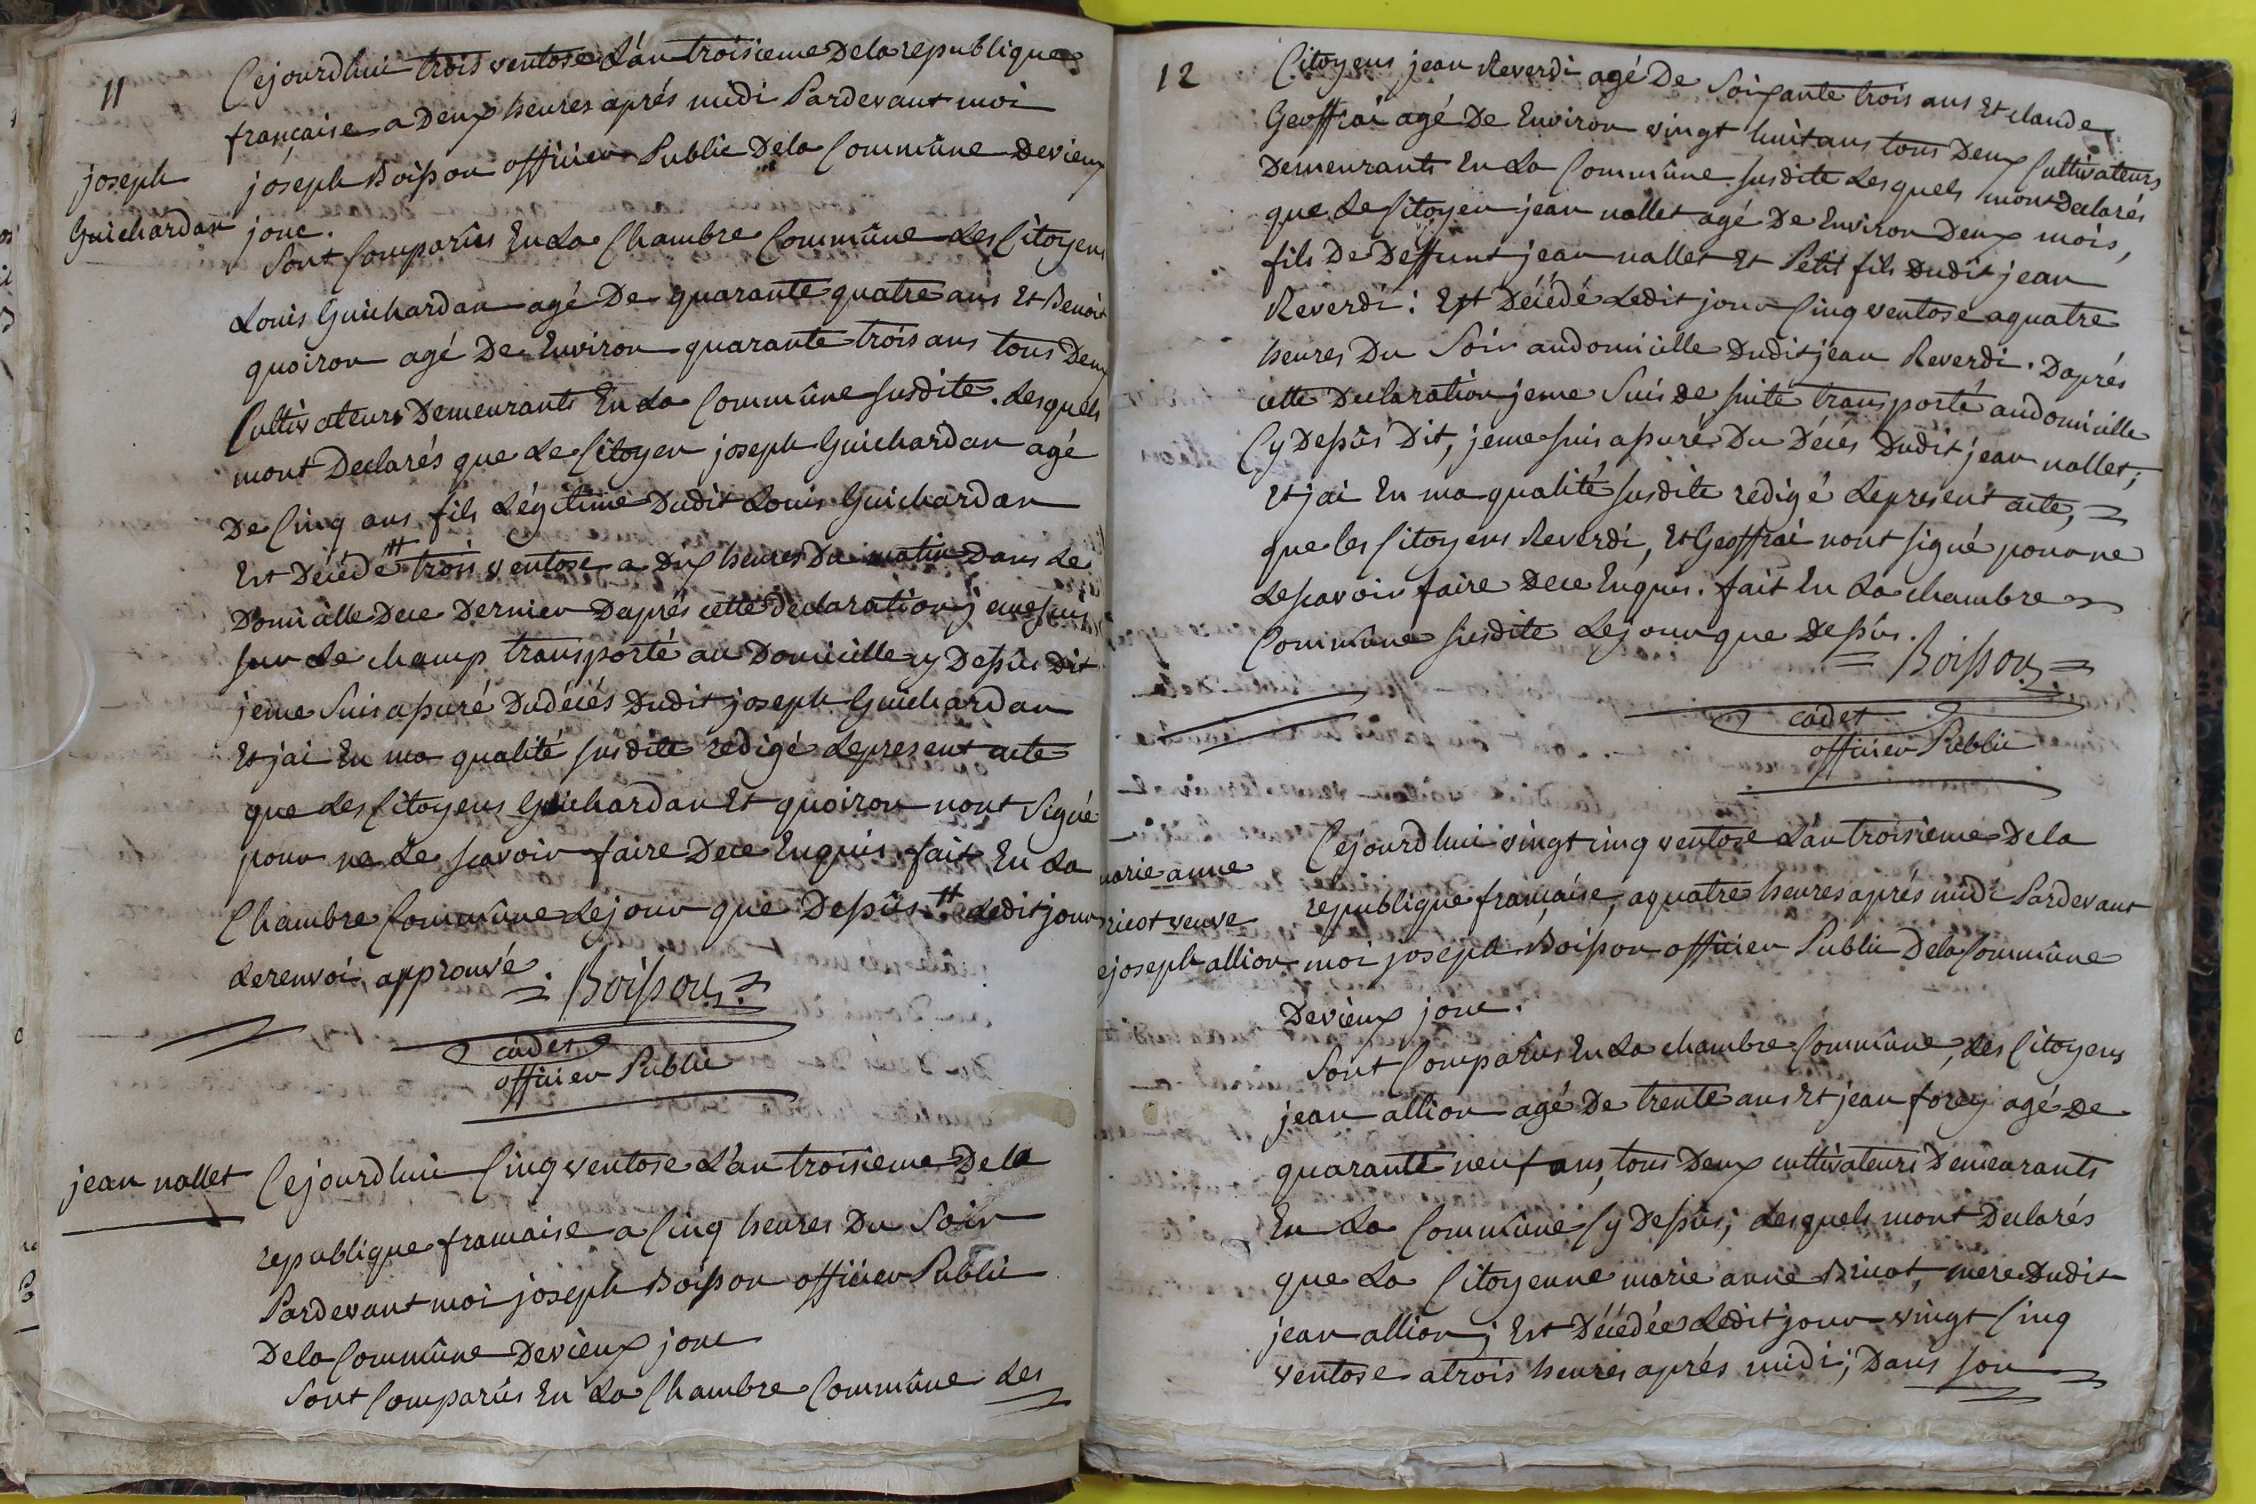 11
Cejourdhui trois ventose L'an troisieme Dela republique
française a Deux heures aprés midi Pardevant moi
joseph Boisson officier Public Dela Commûne Devieux
jouc.
joseph
Guichardan
Sont Comparûs En La Chambre Commûne Les Citoyens
Louis Guichardan agé De quarante quatre ans Et Benoit
quoiron agé De Environ quarante trois ans tous Deux
Cultivateurs Demeurants En La Commûne susdite. Lesquels
mont Declarés que Le Citoyen joseph Guichardan agé
De Cinq ans fils Légitime Dudit Louis Guichardan
Est Décédé # trois ventose a Dix heures Du matin Dans Le
Domicille Dece Dernier Daprés cette Declaration jeme suis
sur Le champ transporté au Domicille cy Dessûs Dit
jeme Suis assuré Dudécés Dudit joseph Guichardan
Et jai En ma qualité susdite redigé Lepresent acte
que Les Citoyens Guichardan Et quoiron nont Signé
pour ne Le scavoir faire Dece Enquis. fait En La
Chambre Commûne Lejour que Dessûs # Ledit jour
Lerenvoi approuvé.
= Boisson =
cadet
officier Public
jean nallet
Cejourdhui Cinq ventose L'an troisieme De la
republique francaise a Cinq heures Du Soir
Pardevant moi joseph Boisson officier Public
Dela Commûne Devieux jouc
Sont Comparûs En La Chambre Commûne Les
12
Citoyens jean Reverdi agé De Soixante trois ans Et claude
Geoffrai agé De Environ vingt huit ans tous Deux Cultivateurs
Demeurants En La Commûne susdite Lesquels mont Declarés
que Le Citoyen jean nallet agé De Environ Deux mois,
fils De Deffunt jean nallet Et Petit fils Dudit jean
Reverdi: Est Décédé Ledit jour Cinq ventose a quatre
heures Du Soir audomicille Dudit jean Reverdi. Daprés
cette Declaration jeme Suis De suite transporté audomicille
Cy Dessûs Dit, jeme suis assuré Du Décés Dudit jean nallet,
Et jai En ma qualité susdite redigé Lepresent acte, =
que les Citoyens Reverdi, Et Geoffrai nont signé pour ne
Lescavoir faire Dece Enquis. fait En La chambre =
Commûne susdite Lejour que Dessus.
= Boisson =
cadet
officier Public
marie anne
Bricot veuve
de joseph allion
Cejourdhui vingt cinq ventose L'an troisieme De la
republique française, a quatre heures aprés midi Pardevant
moi joseph Boisson officier Public Dela Commûne
Devieux jouc.
Sont Comparûs En La chambre Commûne, Les Citoyens
jean allion agé De trente ans Et jean forey agé De
quarante neuf ans, tous Deux cultivateurs Demeurants
En La Commûne Cy Dessûs; Lesquels mont Declarés
que La Citoyenne marie anne Bricot, mere Dudit
jean allion; Est Décédée Ledit jour vingt Cinq
ventose a trois heures aprés midi; Dans son